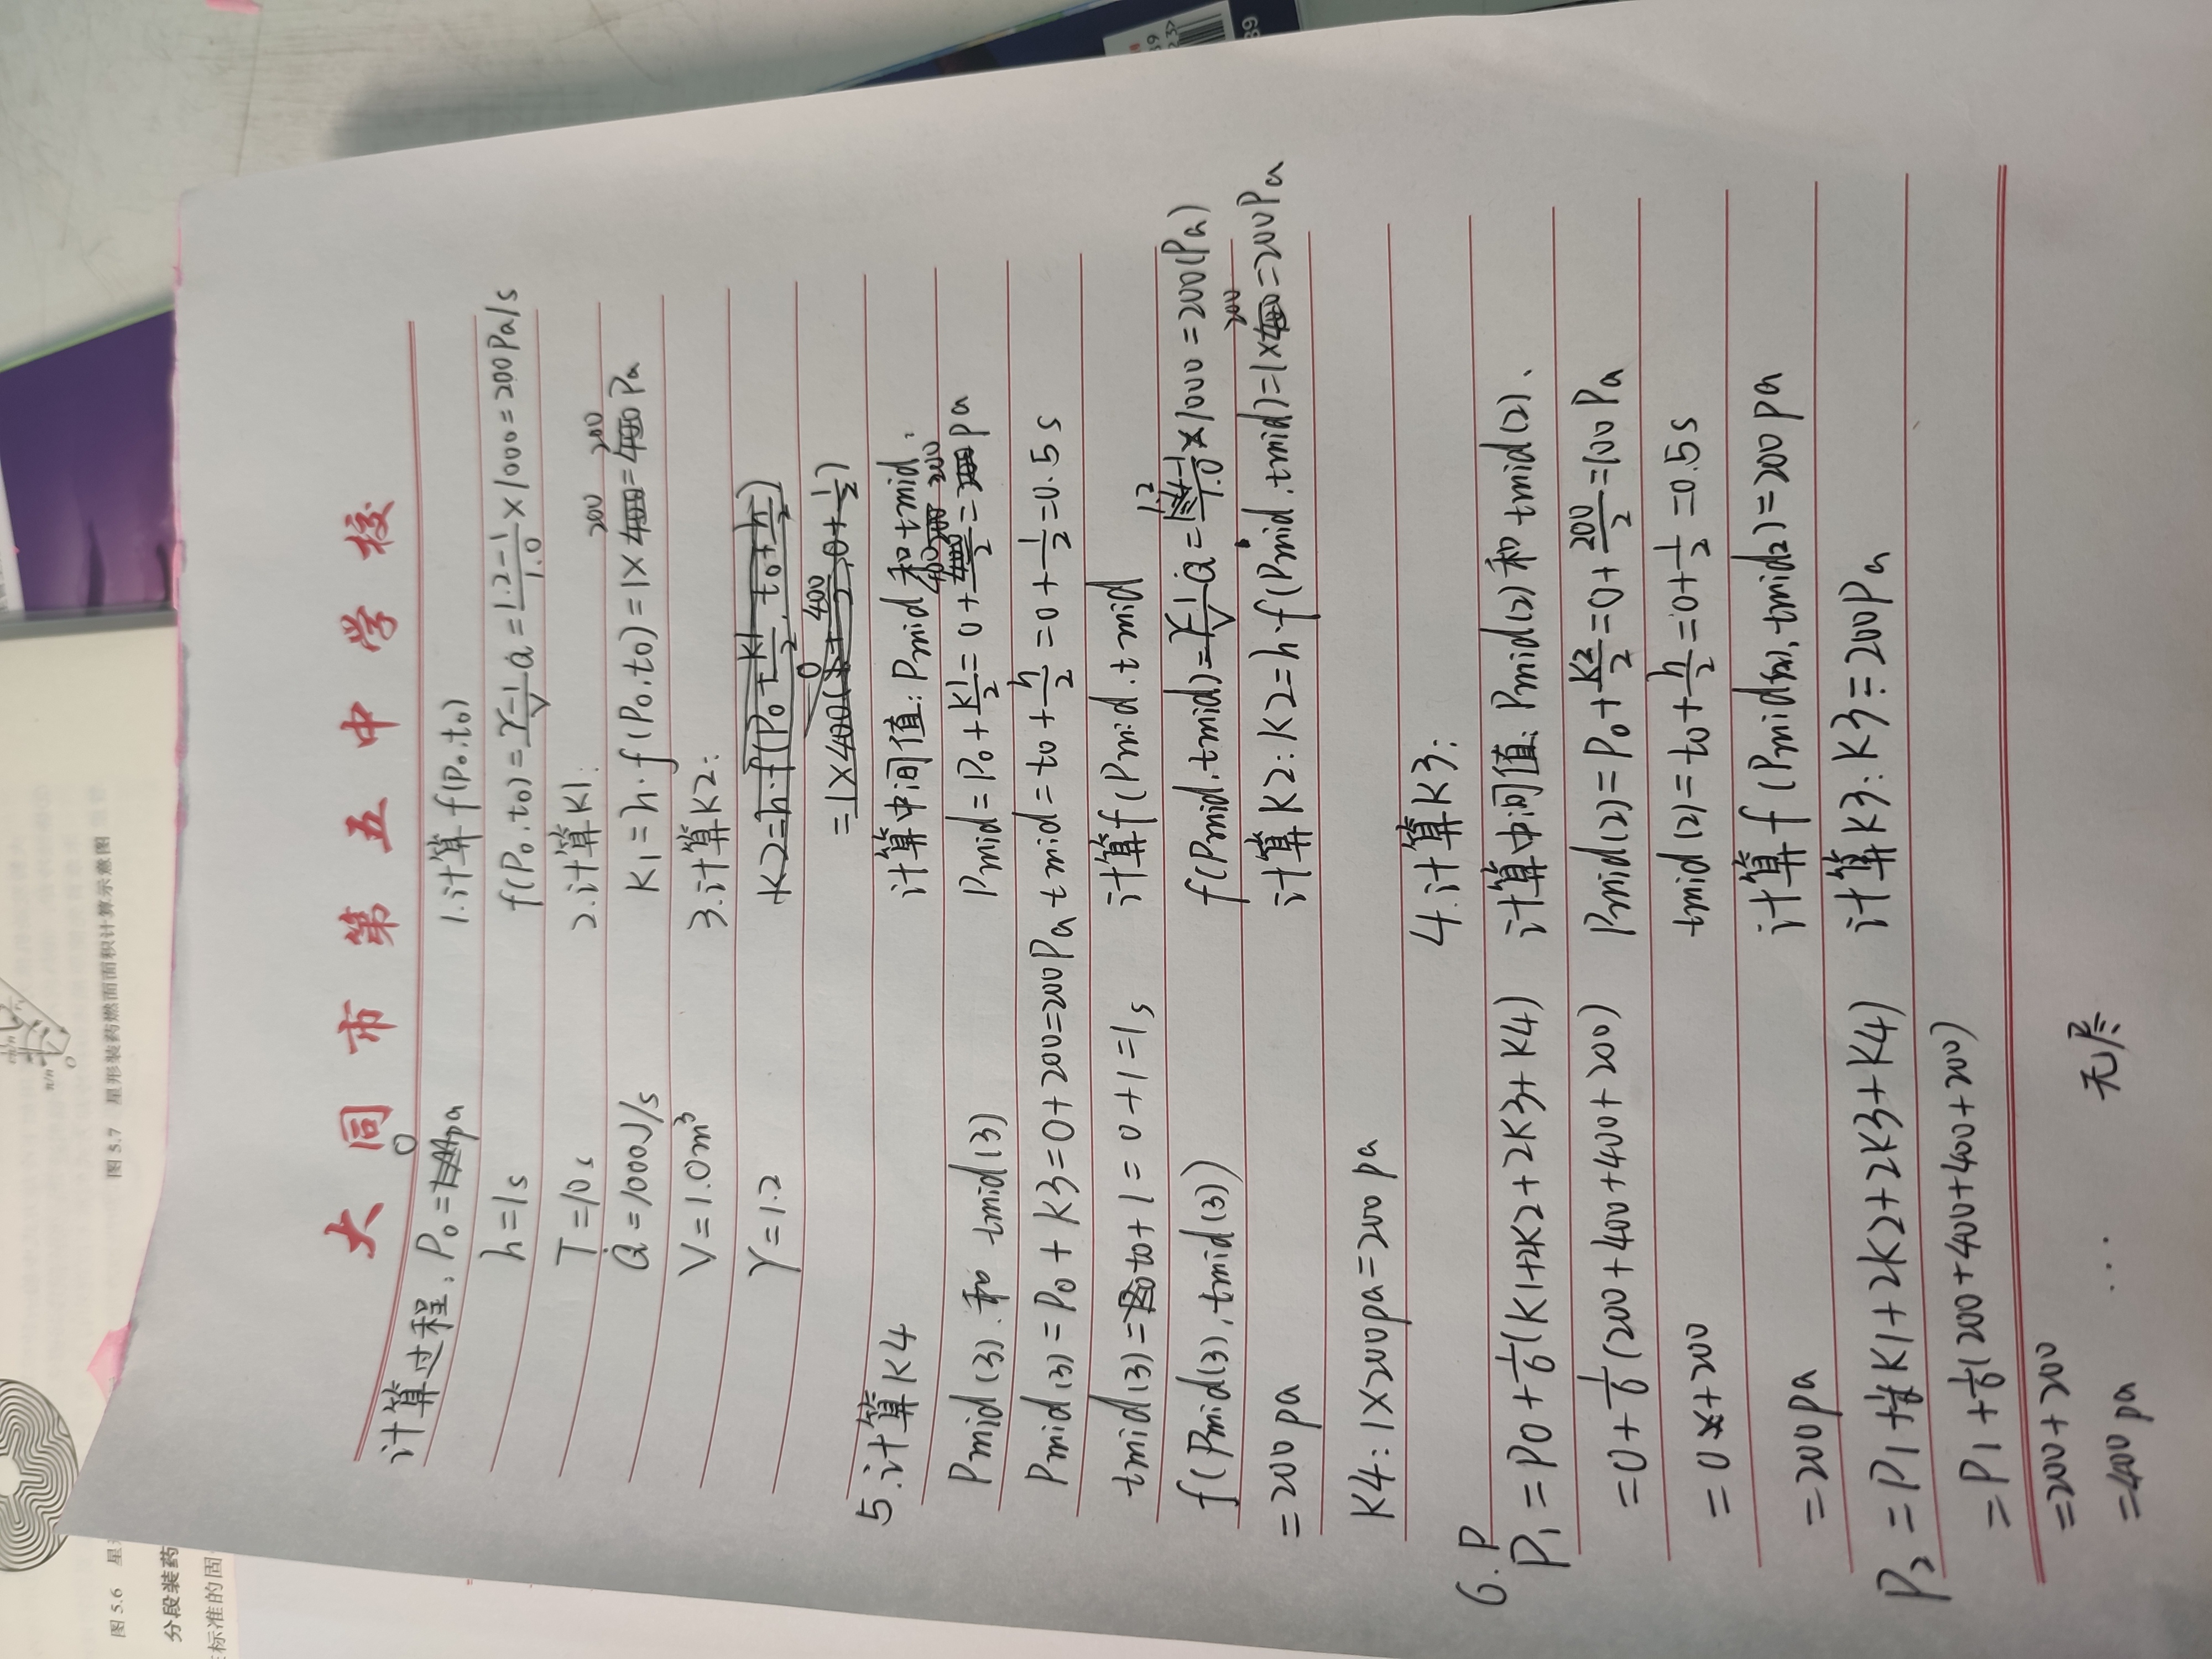 大同市第五中学校
计算过程: P₀=0pa
h=1s
T=10s
Q̇=1000J/s
V=1.0m³
γ=1.2
1.计算f(P₀.t₀)
f(P₀.t₀)=γ-1/V Q̇=1.2-1/1.0×1000=200Pa/s
2.计算K1:
K1=h·f(P₀.t₀)=1×200=200Pa
3.计算K2:
K2=h·f(P₀+K1/2, t₀+h/2)
=1×400(0+400/2,0+1/2)
计算中间值: Pmid和tmid.
Pmid=P₀+K1/2=0+400/2=200pa
tmid=t₀+h/2=0+1/2=0.5s
计算f(Pmid.tmid
f(Pmid.tmid)=γ-1/V Q̇=1.2-1/1.0×1000=200(Pa)
计算K2:K2=h·f(Pmid.tmid)=1×200=200Pa
4.计算K3:
计算中间值: Pmid(2)和tmid(2).
Pmid(2)=P₀+K2/2=0+200/2=100Pa
tmid(2)=t₀+h/2=0+1/2=0.5s
计算f(Pmid(2),tmid2)=200pa
计算K3:K3=200Pa
5.计算K4
Pmid(3).和tmid(3)
Pmid(3)=P₀+K3=0+200=200Pa
tmid(3)=t0+1=0+1=1s
f(Pmid(3),tmid(3))
=200pa
K4:1×200pa=200pa
6.P
P₁=P0+1/6(K1+2K2+2K3+K4)
=0+1/6(200+400+400+200)
=0+200
=200pa
P₂=P1+1/6(K1+2K2+2K3+K4)
=P1+1/6(200+400+400+200)
=200+200
=400pa ... 无尽
图5.7 星形装药燃面面积计算示意图
图5.6 星
分段装药
标准的固